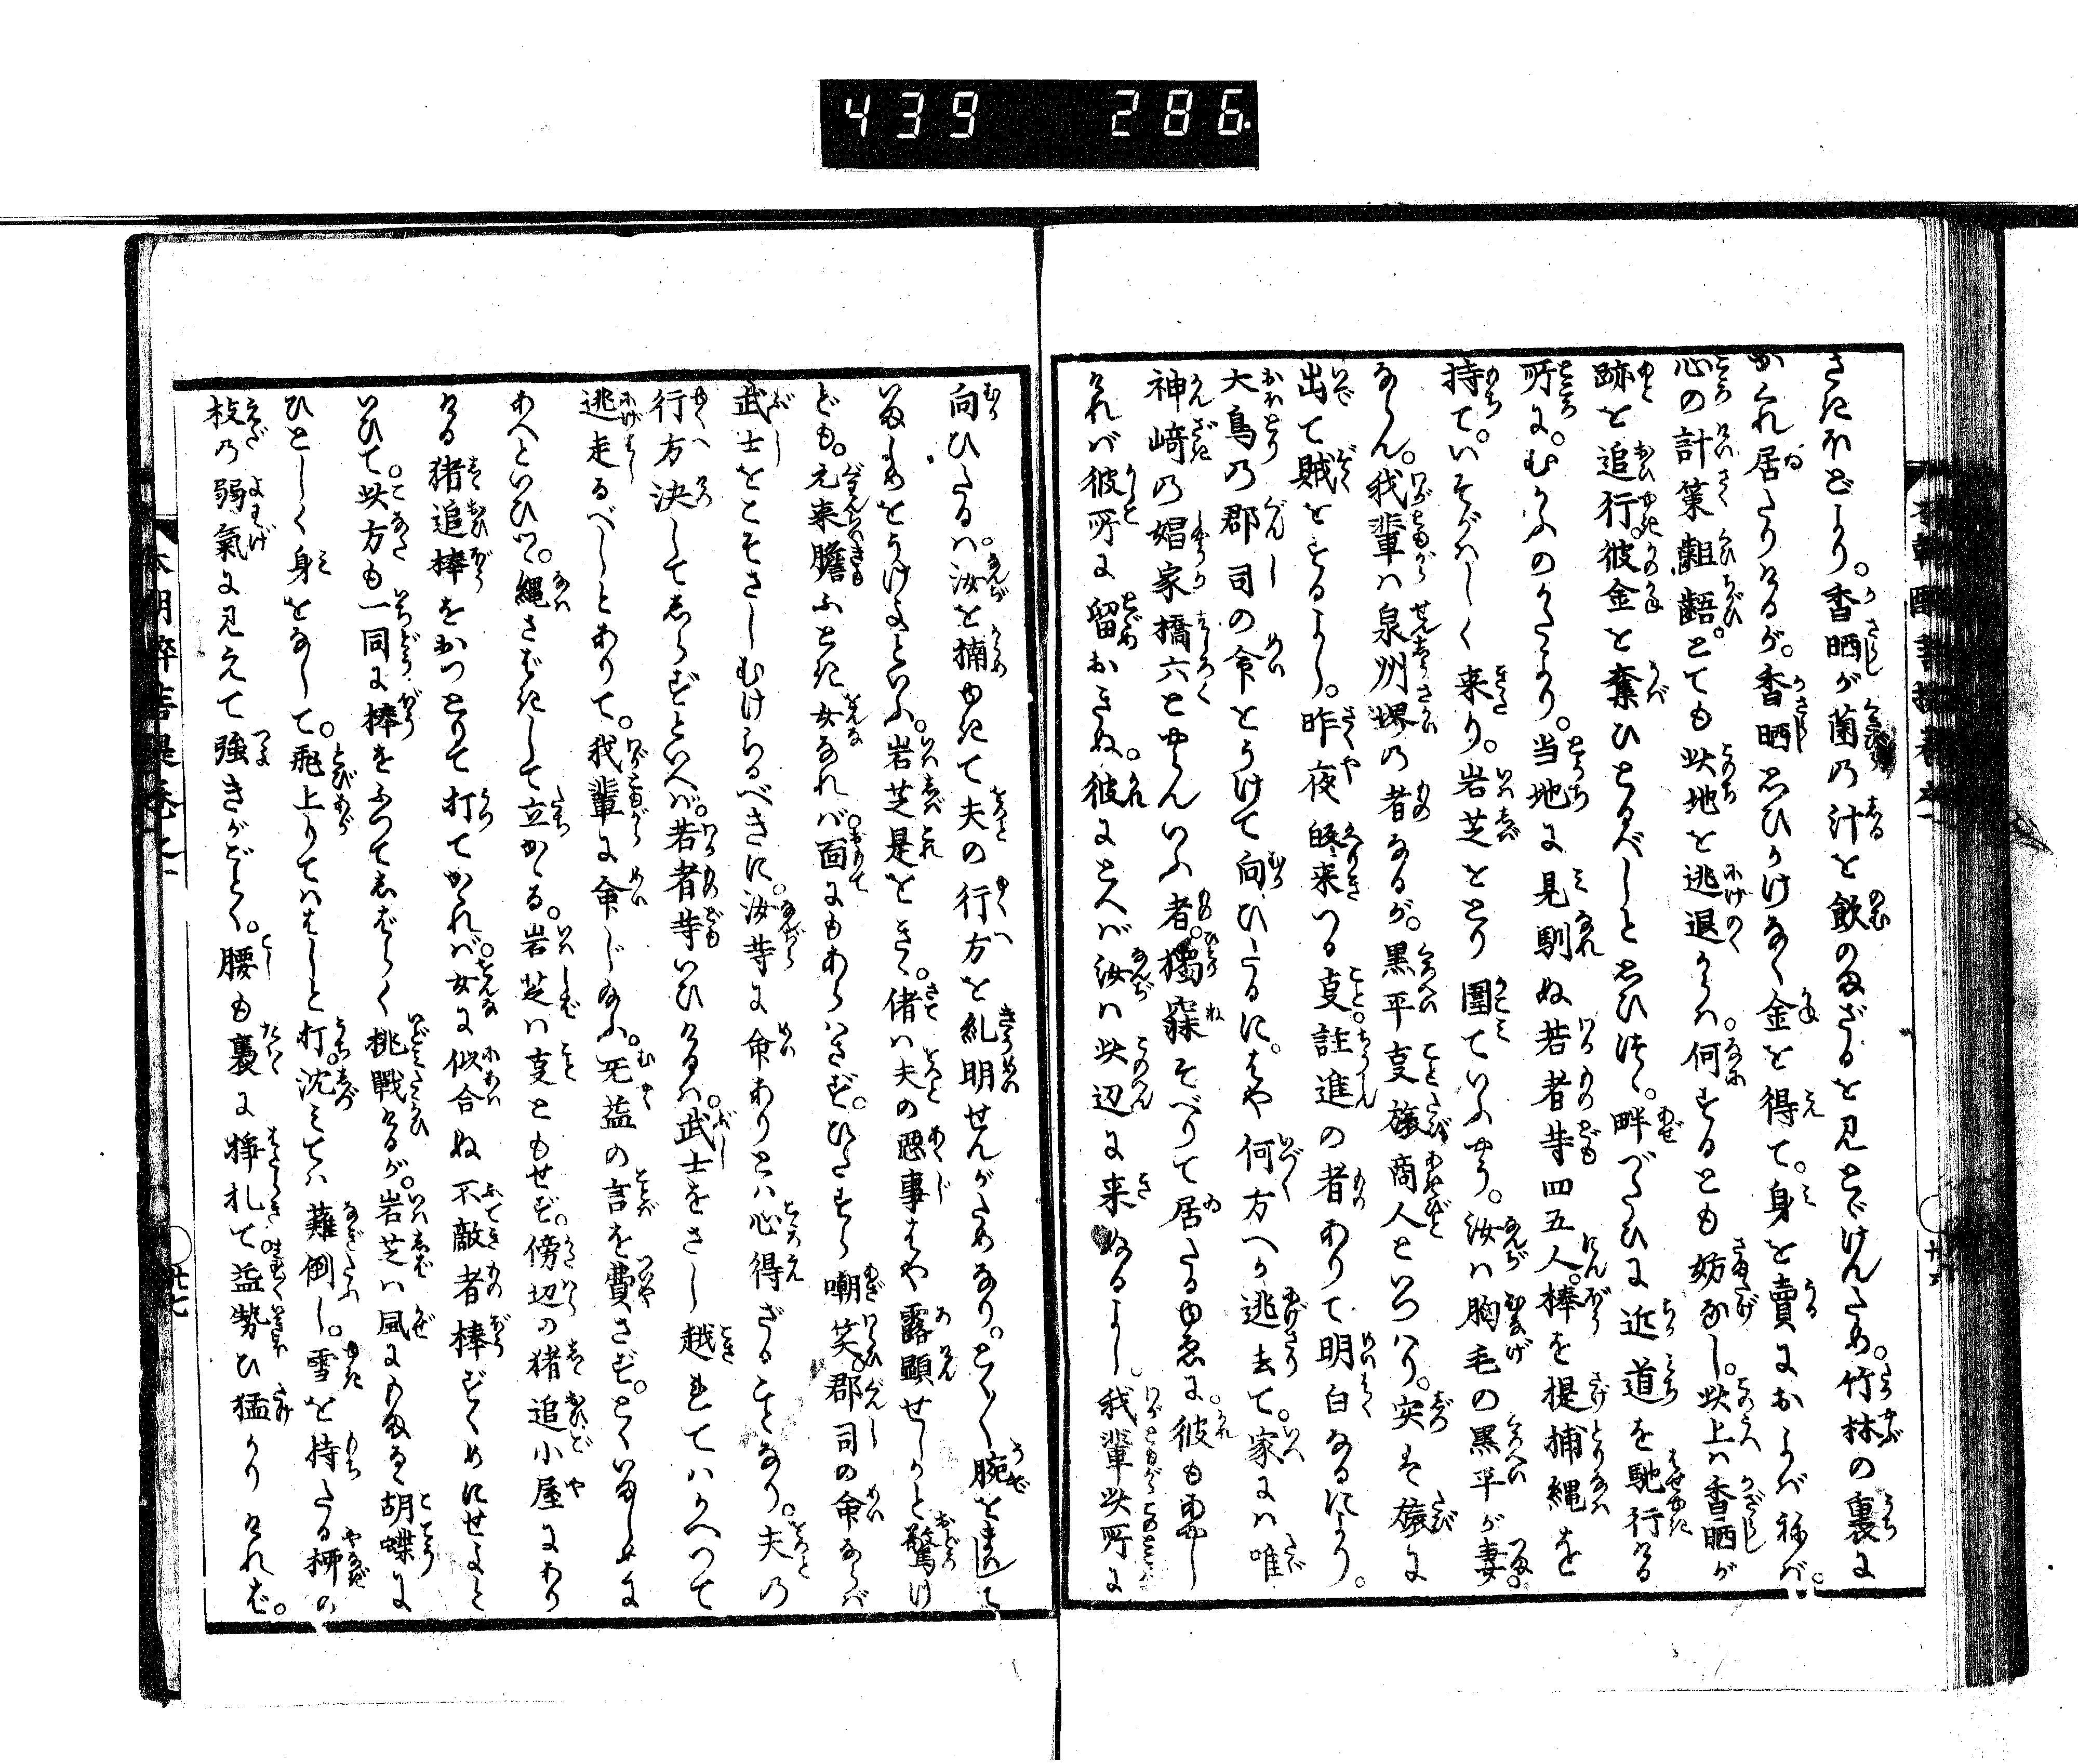 439 286
さにほどより。香晒が菌の汁を飲のまざるを見とゞけんため。竹林の裏に
かくれ居たりけるが。香晒おもひかけなく金を得て。身を賣におよばねば。
心の計策齟齬。とても此地を逃退からハ。何をするとも妨なし。此上ハ香晒が
跡を追行。彼金を奪ひとるべしとおもひつゝ。畔づたひに近道を馳行ける
所に。むかふのかたより。当地に見馴ぬ若者等四五人。棒を提捕縄を
持て。いそがハしく来り。岩芝をとり圍ていふやう。汝ハ胸毛の黒平が妻
ならん。我輩ハ泉州堺の者なるが。黒平事旅商人といつハり。実は旅に
出て賊をするよし。昨夜飛来つる事註進の者ありて明白なるにより。
大鳥の郡司の命をうけて向ひたるに。はや何方へか逃去て。家にハ唯
神崎の娼家橋六とやらんいふ者。獨寐そべりて居たるゆゑに。彼も怪し
ければ彼所に留おきぬ。彼にとへバ汝ハ此辺に来ぬるよし。我輩此所に
向ひたるハ。汝を捕ゆきて夫の行方を糺明せんがためなり。とく〳〵腕をまハして
いましめをうけよといふ。岩芝是をきゝ。偖ハ夫の悪事はや露顕せしかと驚け
ども。元来膽ふとき女なれバ。面にもあらハさず。ひたすら嘲笑。郡司の命ならバ
武士をこそさしむけらるべきに。汝等に命ありとハ心得ざることなり。夫の
行方決してしらずといへバ。若者等いひけるハ。武士をさし越れてハかへつて
逃走るべしとありて。我輩に命じ給ふ。无益の言を費さず。とくいましめに
あへといひつゝ。縄さばきして立かゝる。岩芝ハ事ともせず。傍辺の猪追小屋にあり
ける猪追棒をおつとりて打てかゝれバ。女に似合ぬ不敵者棒ずくめにせよと
いひて。此方も一同に棒をふつてしばらく挑戰けるが。岩芝ハ風にまふ胡蝶に
ひとしく身をなして。飛上りてハはしと打。沈みてハ薙倒し。雪を持たる柳の
枝の弱氣に見えて強きがごとく。腰も裏に挿札て益勢ひ猛かりければ。
本朝酔菩提巻之一
廿七